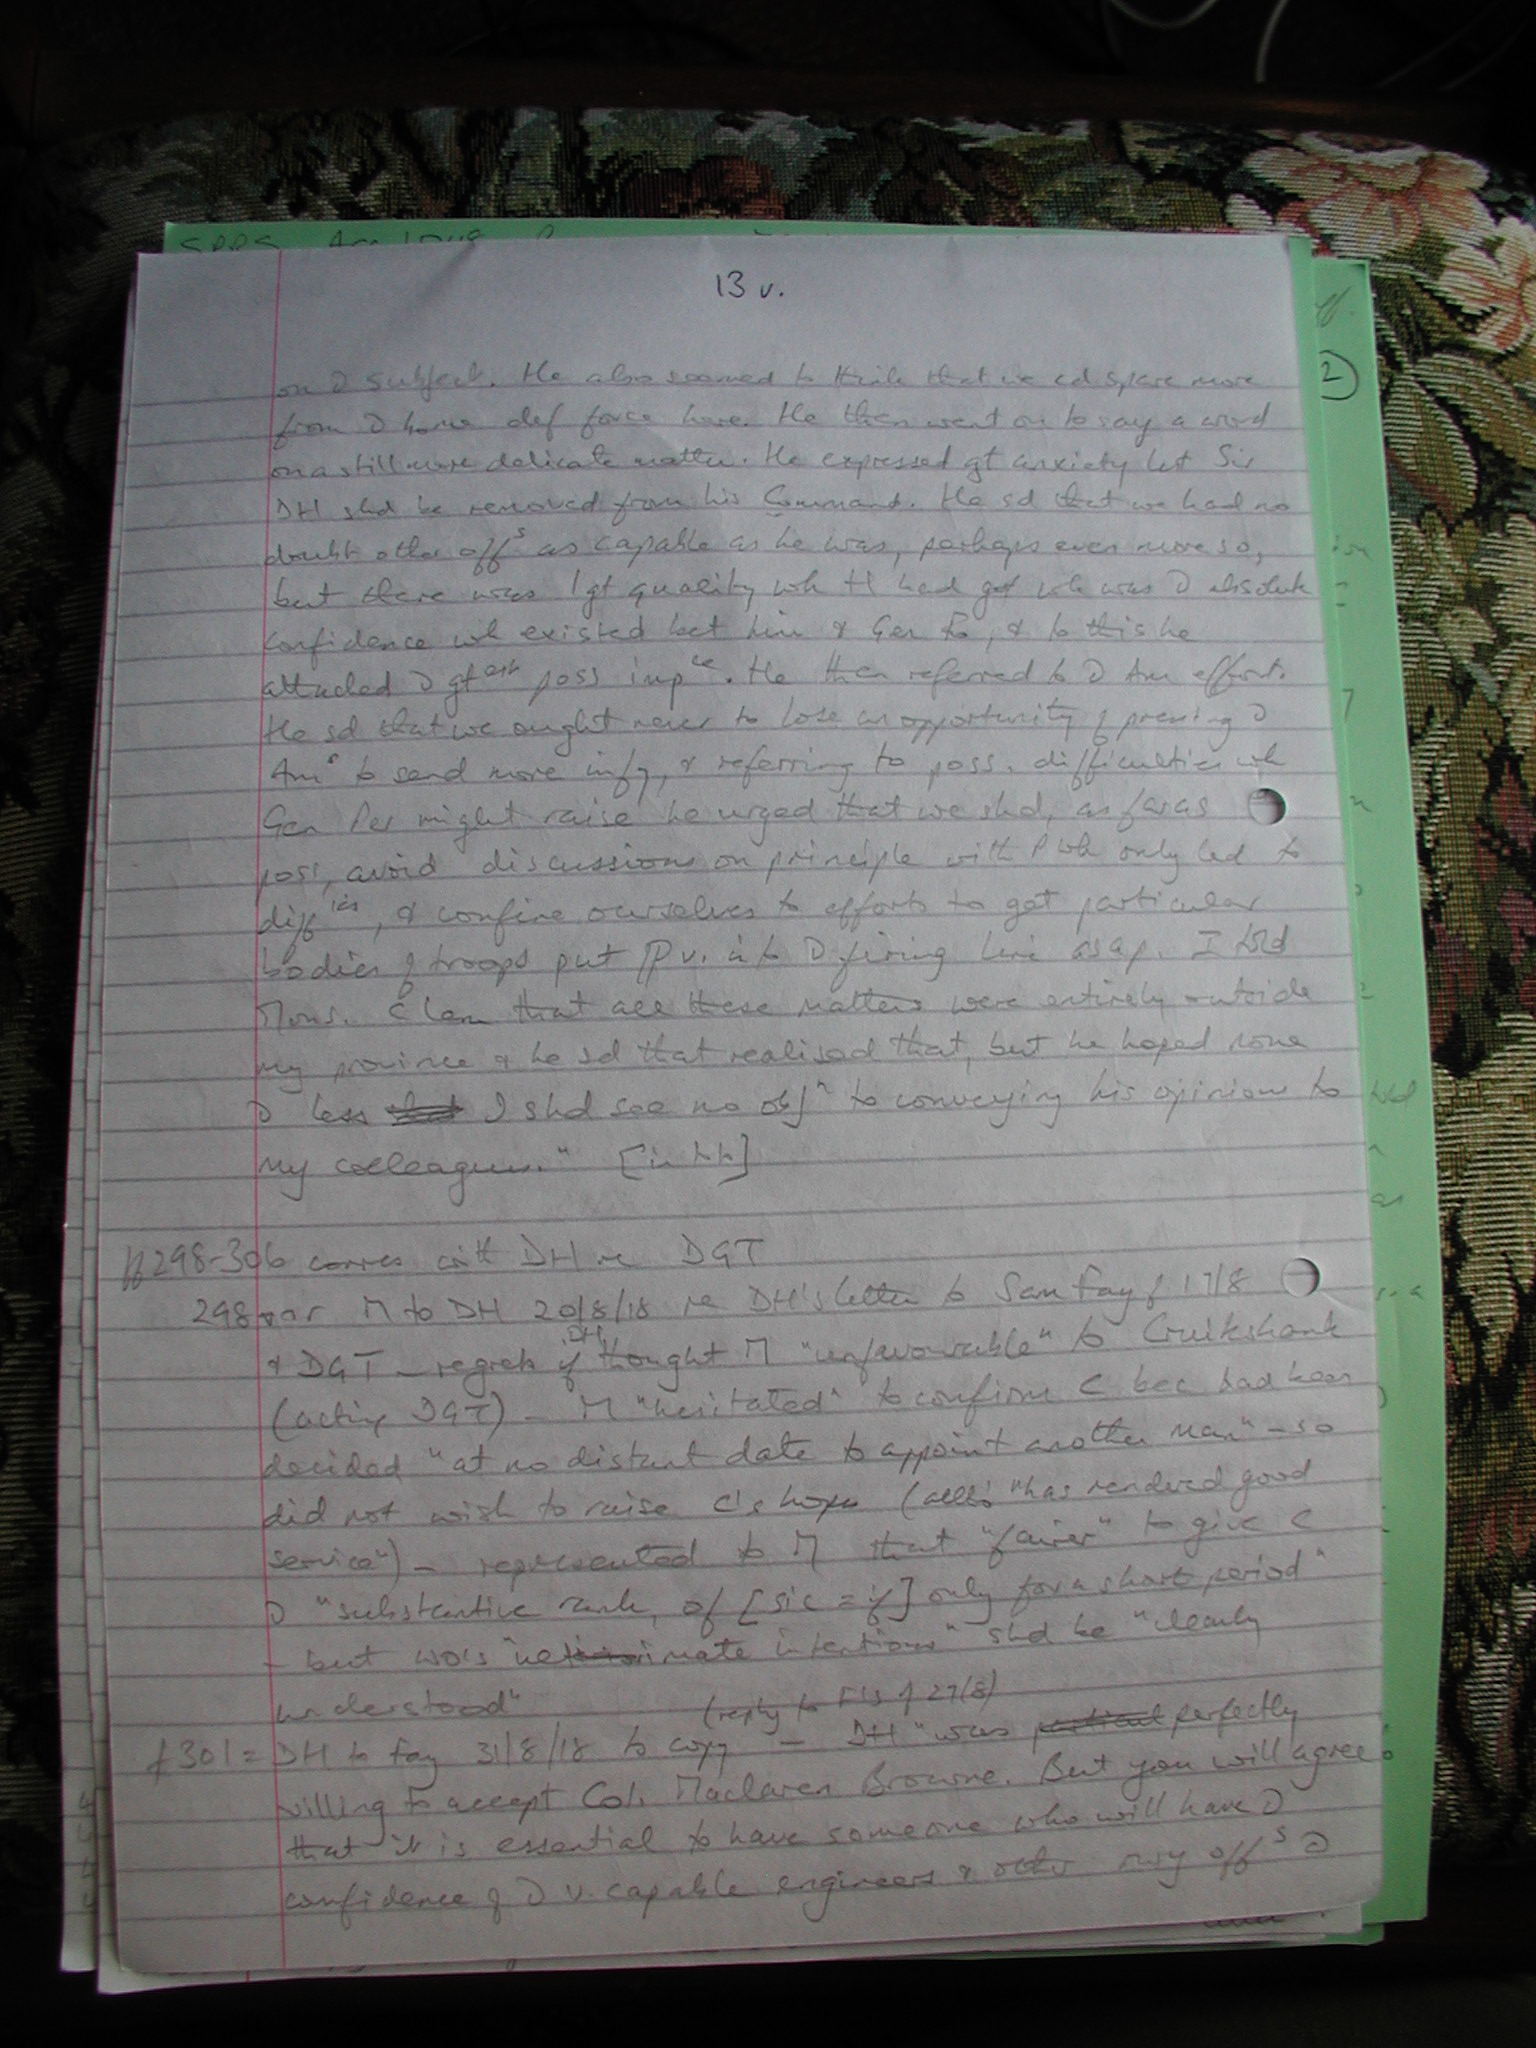 13 v.
on D subject. He also seemed to think that we cd spare more
from D home def force here. He then went on to say a word
on a still more delicate matter. He expressed gt anxiety lest Sir
DH shd be removed from his Command. He sd that we had no
doubt other offs as capable as he was, perhaps even more so,
but there was 1 gt quality wh H had got wh was D absolute
confidence wh existed bet him & Gen Fo, & to this he
attached D gtest poss impce. He then referred to D Am effort.
He sd that we ought never to lose an opportunity of pressing D
Ams to send more infy, & referring to poss. difficulties wh
Gen Per might raise he urged that we shd, as far as
poss, avoid discussions on principle with P wh only led to
diffies, & confine ourselves to efforts to get particular
bodies of troops put into D firing line asap. I told
Mons. Clem that all these matters were entirely outside
my province & he sd that realised that, but he hoped none
D less I shd see no objn to conveying his opinions to
my colleagues." [in hh]
ff298-306 corres with DH re DGT
298 M to DH 20/8/18 re DH's letter to Sam Fay of 17/8
& DGT - regrets if DH thought M "unfavourable" to Cruikshank
(acting DGT) - M "hesitated" to confirm C bec had been
decided "at no distant date to appoint another man" - so
did not wish to raise C's hopes ("has rendered good
service") - represented to M that "fairer" to give C
D "substantive rank, of [sic = if] only for a short period"
- but WO's intentions" shd be "clearly
understood"
(reply to F's of 27/8)
f301 = DH to Fay 31/8/18 to copy - DH "was perfectly
willing to accept Col. Maclaren Browne. But you will agree
that it is essential to have someone who will have D
confidence of D v. capable engineers & other rwy offs D